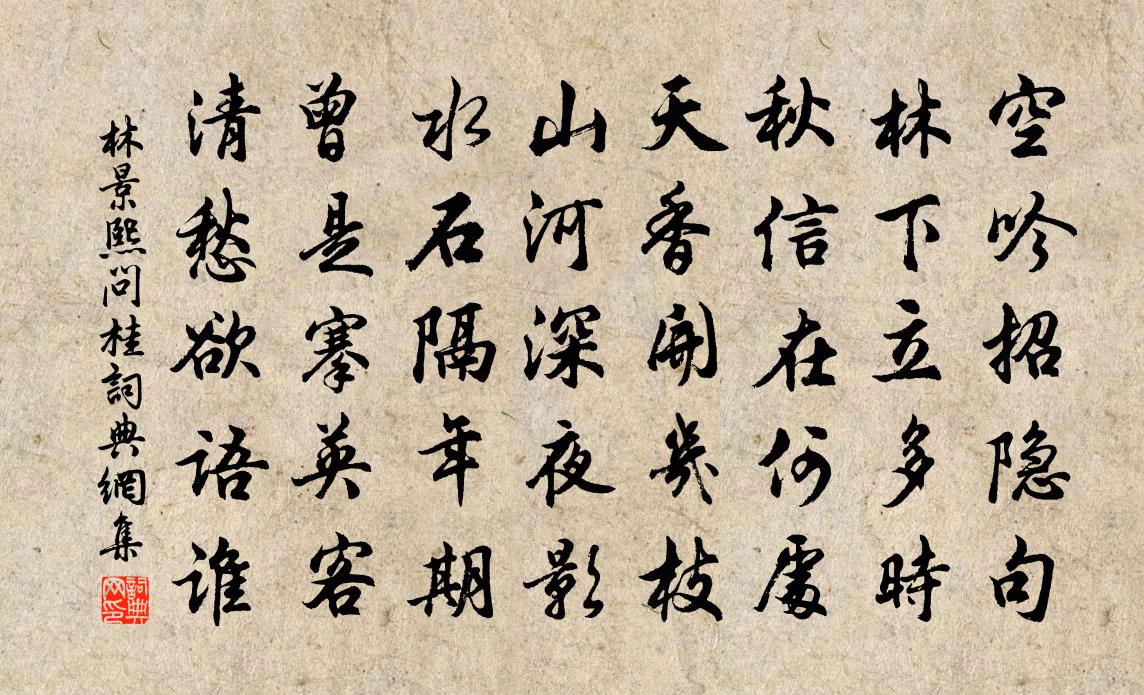 空吟招隐句
林下立多時
秋信在何處
天香開幾枝
山河深夜影
水石隔年期
曾是搴英客
清愁欲語誰
林景熙問桂詞典網集
詞典網印